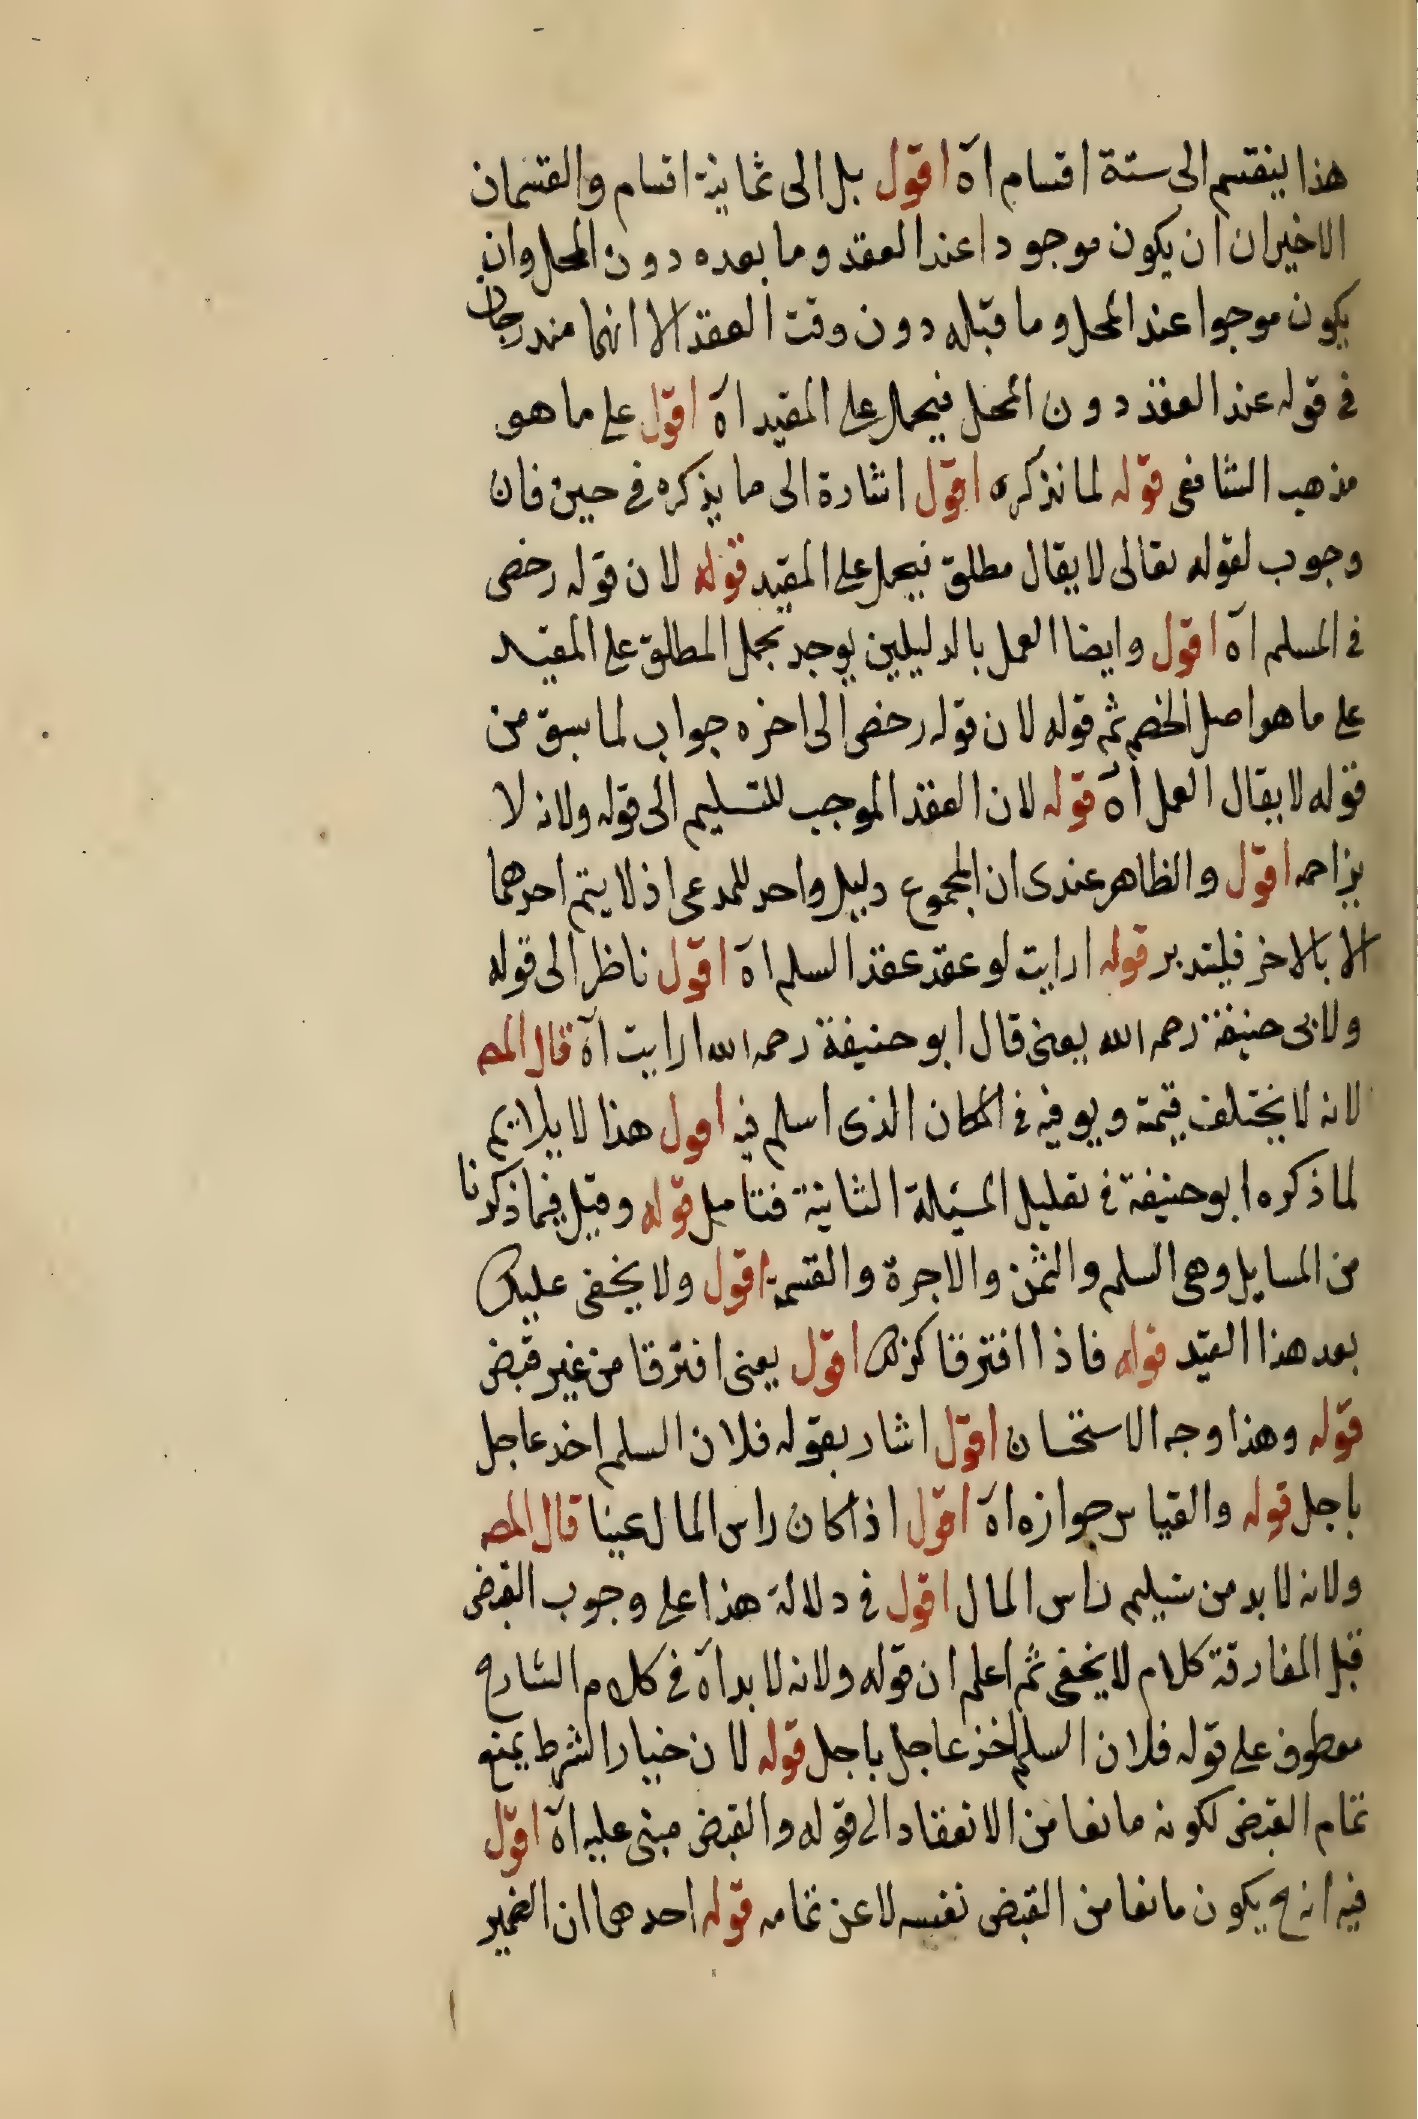 هذا ينقسم الى ستة اقسام اه اقول بل الى ثمانية اقسام والقسمان
الاخيران ان يكون موجودا عند العقد وما بعده دون المحل وان
يكون موجوا عند المحل وما قبله دون وقت العقد الا انهما مندرجان
فى قوله عند العقد دون المحل فيحمل على المقيد اه اقول على ما هو
مذهب الشافعى قوله لما نذكره اقول اشارة الى ما يذكره فى حين فان
وجوب لقوله تعالى لا يقال مطلق فيحمل على المقيد قوله لان قوله رخص
فى السلم اه اقول وايضا العمل بالدليلين يوجد بحمل المطلق على المقيد
على ما هو اصل الخصم ثم قوله لان قوله رخص الى اخره جواب لما سبق من
قوله لا يقال العمل اه قوله لان العقد الموجب للتسليم الى قوله ولانه لا
يزاحمه اقول والظاهر عندى ان المجموع دليل واحد للمدعى اذ لا يتم احدهما
الا بالاخر فليتدبر قوله ارايت لو عقد عقد السلم اه اقول ناظر الى قوله
ولابى حنيفة رحمه الله يعنى قال ابو حنيفة رحمه الله ارايت اه قال المص
لانه لا يختلف قيمته ويوفيه فى المكان الذى اسلم فيه اقول هذا لا يلايم
لما ذكره ابو حنيفة فى تعليل المسئلة الثانية فتامل قوله وقيل فيما ذكرنا
من المسايل وهى السلم والثمن والاجرة والقسمة اقول ولا يخفى عليك
بعد هذا القيد قوله فاذا افترقا كذلك اقول يعنى افترقا من غير قبض
قوله وهذا وجه الاستحسان اقول اشار بقوله فلان السلم اخذ عاجل
باجل قوله والقياس جوازه اه اقول اذا كان راس المال عينا قال المص
ولانه لا بد من تسليم راس المال اقول فى دلالة هذا على وجوب القبض
قبل المفارقة كلام لا يخفى ثم اعلم ان قوله ولانه لا بد اه فى كلام الشارح
معطوف على قوله فلان السلم اخذ عاجل باجل قوله لان خيار الشرط يمنع
تمام القبض لكونه مانعا من الانعقاد الى قوله والقبض مبنى عليه اه اقول
فيه انه ح يكون مانعا من القبض نفسه لا عن تمامه قوله احدهما ان الضمير